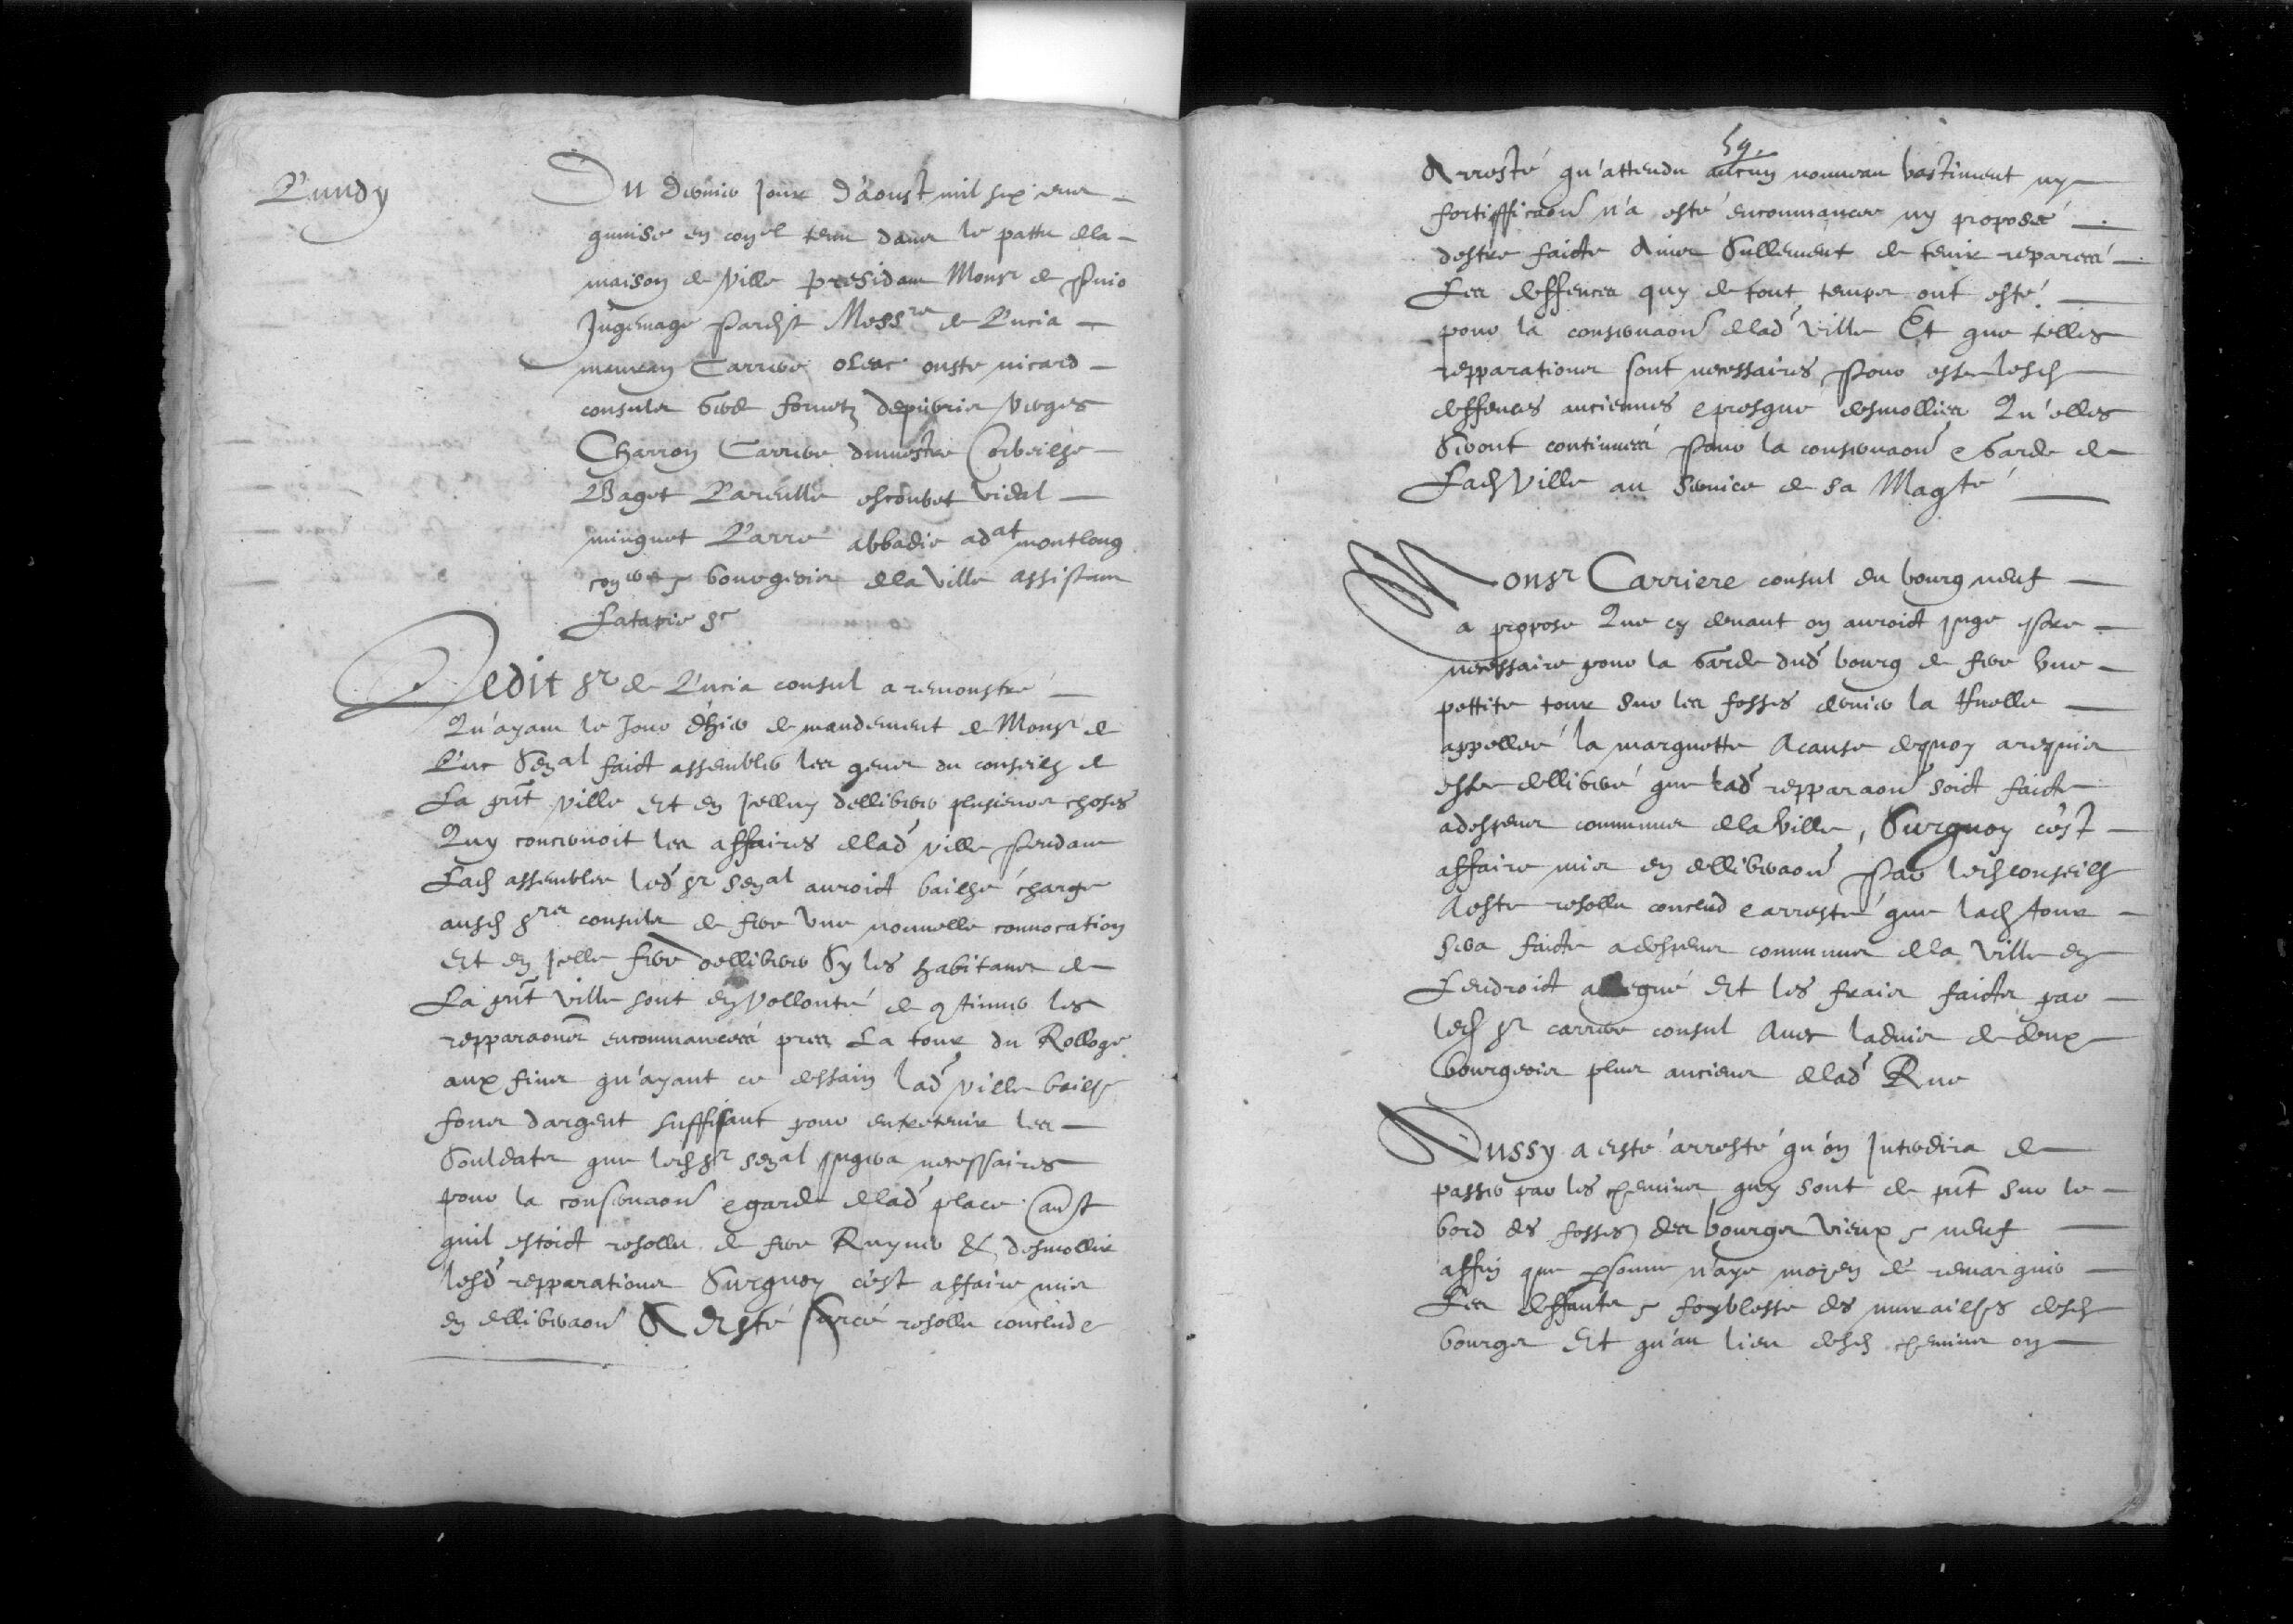 Lundy
Du dernier Jour d'aoust mil six cens
quinse en conel tenu dans le pattu de la
maison de ville presidant Monsr de Puio
Jugemage par dt Messrs de Lucia
mauran Carriere oleac ouste vicard
consulz fornetz depubrie verges
Charron Carriere dimestre Corbeilhe
Baget Lareulle escoubet vidal
minguet Larre abbadie adat montlong
coners & bourgeois de la ville assistans
Latapie sr
Ledit sr de Lucia consul a remonstré
Qu'ayant le Jour d'hier de mandement de Monsr de
Luc Senal faict assembler les gens du conseilh de
La pnt ville Et en Jcelluy delliberer plusieurs choses
Quy concernoit les affaires de lad ville pendant
Lad assemblee led sr Senal auroict bailhé charge
ausd srs consulz de fere une nouvelle convocation
Et en Jcelle fere delliberer Sy les habitans de
La pnt ville sont en vollonté de continuer les
repparaons encommancees pres La tour du Rolloge
aux fins qu'ayant ce dessain lad ville bailhe
fons dargent suffisant pour entretenir les
Souldatz que led sr Senal jugera necessaires
pour la conservaon e garde de lad place
quil estoict resollu de fere Ruyner & desmollir
lesd repparations Surquoy c'est affaire mis
en delliberaon A Esté resollu conclud e
59
Arresté qu'attendu aucun nouveau bastiment ny
fortifficaon n'a esté encommancee ny proposee
destre faicte Ains Sullement de tenir reparees
Les deffences quy de tout temps ont esté
pour la conservaon de lad ville Et que telles
repparations sont necessaires pour estre lesd
deffences anciennes e presque desmollies Qu'elles
Seront continuees pour la conservaon e Garde de
Lad Ville au Service de sa Magté
Monsr Carriere consul du bourg neuf
a propose Que cy devant on auroict juge estre
necessaire pour la Garde dud bourg de fere une
pettite tour sur les fosses dernier la Ruelle
appellee la marquette Acause dequoy a requis
estre delliberé que lad repparaon soict faicte
a despens communs de la ville, Surquoy c'est
affaire mis en delliberaon par led conseilh
A este resollu conclud e arresté que lad tour
sera faicte a despens communs de la ville en
Lendroict allegué Et les frais faictz par
led sr carriere consul Avec ladvis de deux
bourgeois plus anciens de lad Rue
Aussy a esté arresté qu'on Jnterdira de
passer par les chemins quy sont de pnt sur le
bord des fosses des bourgs vieux & neuf
affin que personne n'aye moyen de remarquer
Les deffautz & foyblesse des murailhes desd
bourgs Et qu'au lieu desd chemins on